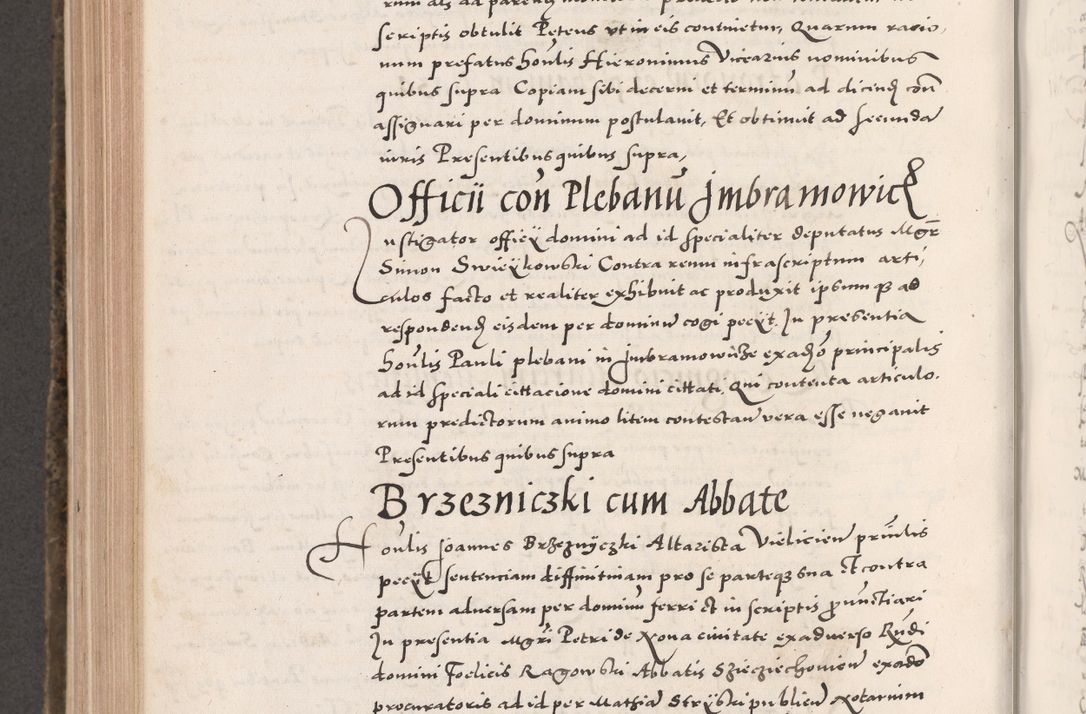 scriptis obtulit Petens ut in eis continetur, Quarum racio,
num prefatus hon̄lis Hieronimus Vicearius nominibus
quibus supra Copiam sibi decerni et terminū ad dicend con̄
assignari per dominum postulavit, Et obtinuit ad secunda
iuris Presentibus quibus supra,
Officii con̄ Plebanū Jmbramowicz
Justigator officÿ domini ad id specialiter deputatus Mgr̄
Simon Swieÿkowski Contra reum infrascriptum arti,
culos facto et realiter exhibuit ac produxit ipsumq̧ ad
respondend eisdem per dominū cogi peeÿt. Jn presentia
hon̄lis Pauli plebani in Jmbramowicze exadº principalis
ad id speciali cittacione domini cittati, Qui contenta articulo,
rum predictorum animo litem contestan̄ vera esse negavit
Presentibus quibus supra
Brzezniczki cum Abbate
Hon̄lis Joannes Brzeznÿczki Altarista Vieliciен̄ prn̄lis
peeÿt sentenciam diffinitivam pro se parteq̧ sua Et contra
partem adversam per dominū ferri et in scriptis ꝓnunctiari
Jn presentia Mgri Petri de Nova civitate exadverso Rn̄di
domini Foelicis Ragowski Abbatis Szieciechovien̄ exadº
procuratoris ad id per Mathiā Strÿski publicū Notarium